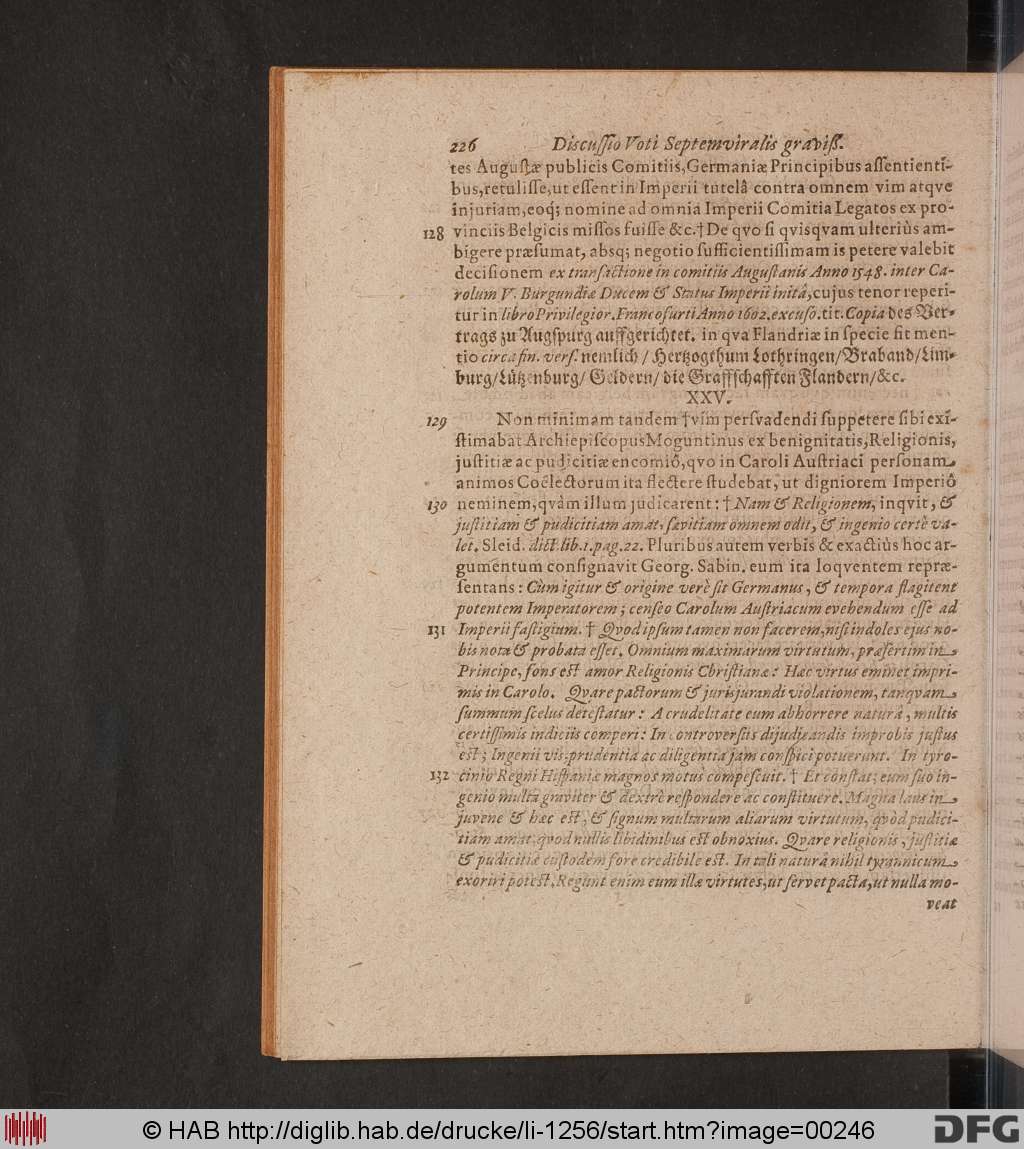 226 Discussio Voti Septemviralis graviss.
tes Augustæ publicis Comitiis, Germaniæ Principibus assentienti-
bus, retulisse, ut essent in Imperii tutelâ contra omnem vim atqve
injuriam, eoq; nomine ad omnia Imperii Comitia Legatos ex pro-
128 vinciis Belgicis missos fuisse &c. † De qvo si qvisqvam ulteriùs am-
bigere præsumat, absq; negotio sufficientissimam is petere valebit
decisionem ex transactione in comitiis Augustanis Anno 1548. inter Ca-
rolum V. Burgundiæ Ducem & Status Imperii initâ, cujus tenor reperi-
tur in libro Privilegior. Francofurti Anno 1602. excuso. tit. Copia des Ver-
trags zu Augspurg auffgerichtet. in qva Flandriæ in specie fit men-
tio circa fin. vers. nemlich / Hertzogthum Lothringen / Braband / Lim-
burg / Lützenburg / Geldern / die Graffschafften Flandern / &c.
XXV.
129 Non minimam tandem † vim persvadendi suppetere sibi exi-
stimabat Archiepiscopus Moguntinus ex benignitatis, Religionis,
justitiæ ac pudicitiæ encomiô, qvo in Caroli Austriaci personam
animos Coëlectorum ita flectere studebat, ut digniorem Imperiô
130 neminem, qvàm illum judicarent: † Nam & Religionem, inqvit, &
justitiam & pudicitiam amat, sævitiam omnem odit, & ingenio certè va-
let. Sleid. dict. lib. 1. pag. 22. Pluribus autem verbis & exactiùs hoc ar-
gumentum consignavit Georg. Sabin. eum ita loqventem repræ-
sentans: Cùm igitur & origine verè sit Germanus, & tempora flagitent
potentem Imperatorem; censeo Carolum Austriacum evehendum esse ad
131 Imperii fastigium. † Qvod ipsum tamen non facerem, nisi indoles ejus no-
bis nota & probata esset. Omnium maximarum virtutum, præsertim in
Principe, fons est amor Religionis Christianæ: Hæc virtus eminet impri-
mis in Carolo. Qvare pactorum & jurisjurandi violationem, tanqvam
summum scelus detestatur: A crudelitate eum abhorrere naturâ, multis
certissimis indiciis comperi: In controversiis dijudicandis improbis justus
est; Ingenii vis, prudentia ac diligentia jam conspici potuerunt. In tyro-
132 cinio Regni Hispaniæ magnos motus compescuit. † Et constat; eum suo in-
genio multa graviter & dextrè respondere ac constituere. Magna laus in
juvene & hæc est, & signum multarum aliarum virtutum, qvòd pudici-
tiam amat, qvod nullis libidinibus est obnoxius. Qvare religionis, justitiæ
& pudicitiæ custodem fore credibile est. In tali naturâ nihil tyrannicum
exoriri potest. Regunt enim eum illæ virtutes, ut servet pacta, ut nulla mo-
veat
© HAB http://diglib.hab.de/drucke/li-1256/start.htm?image=00246
DFG